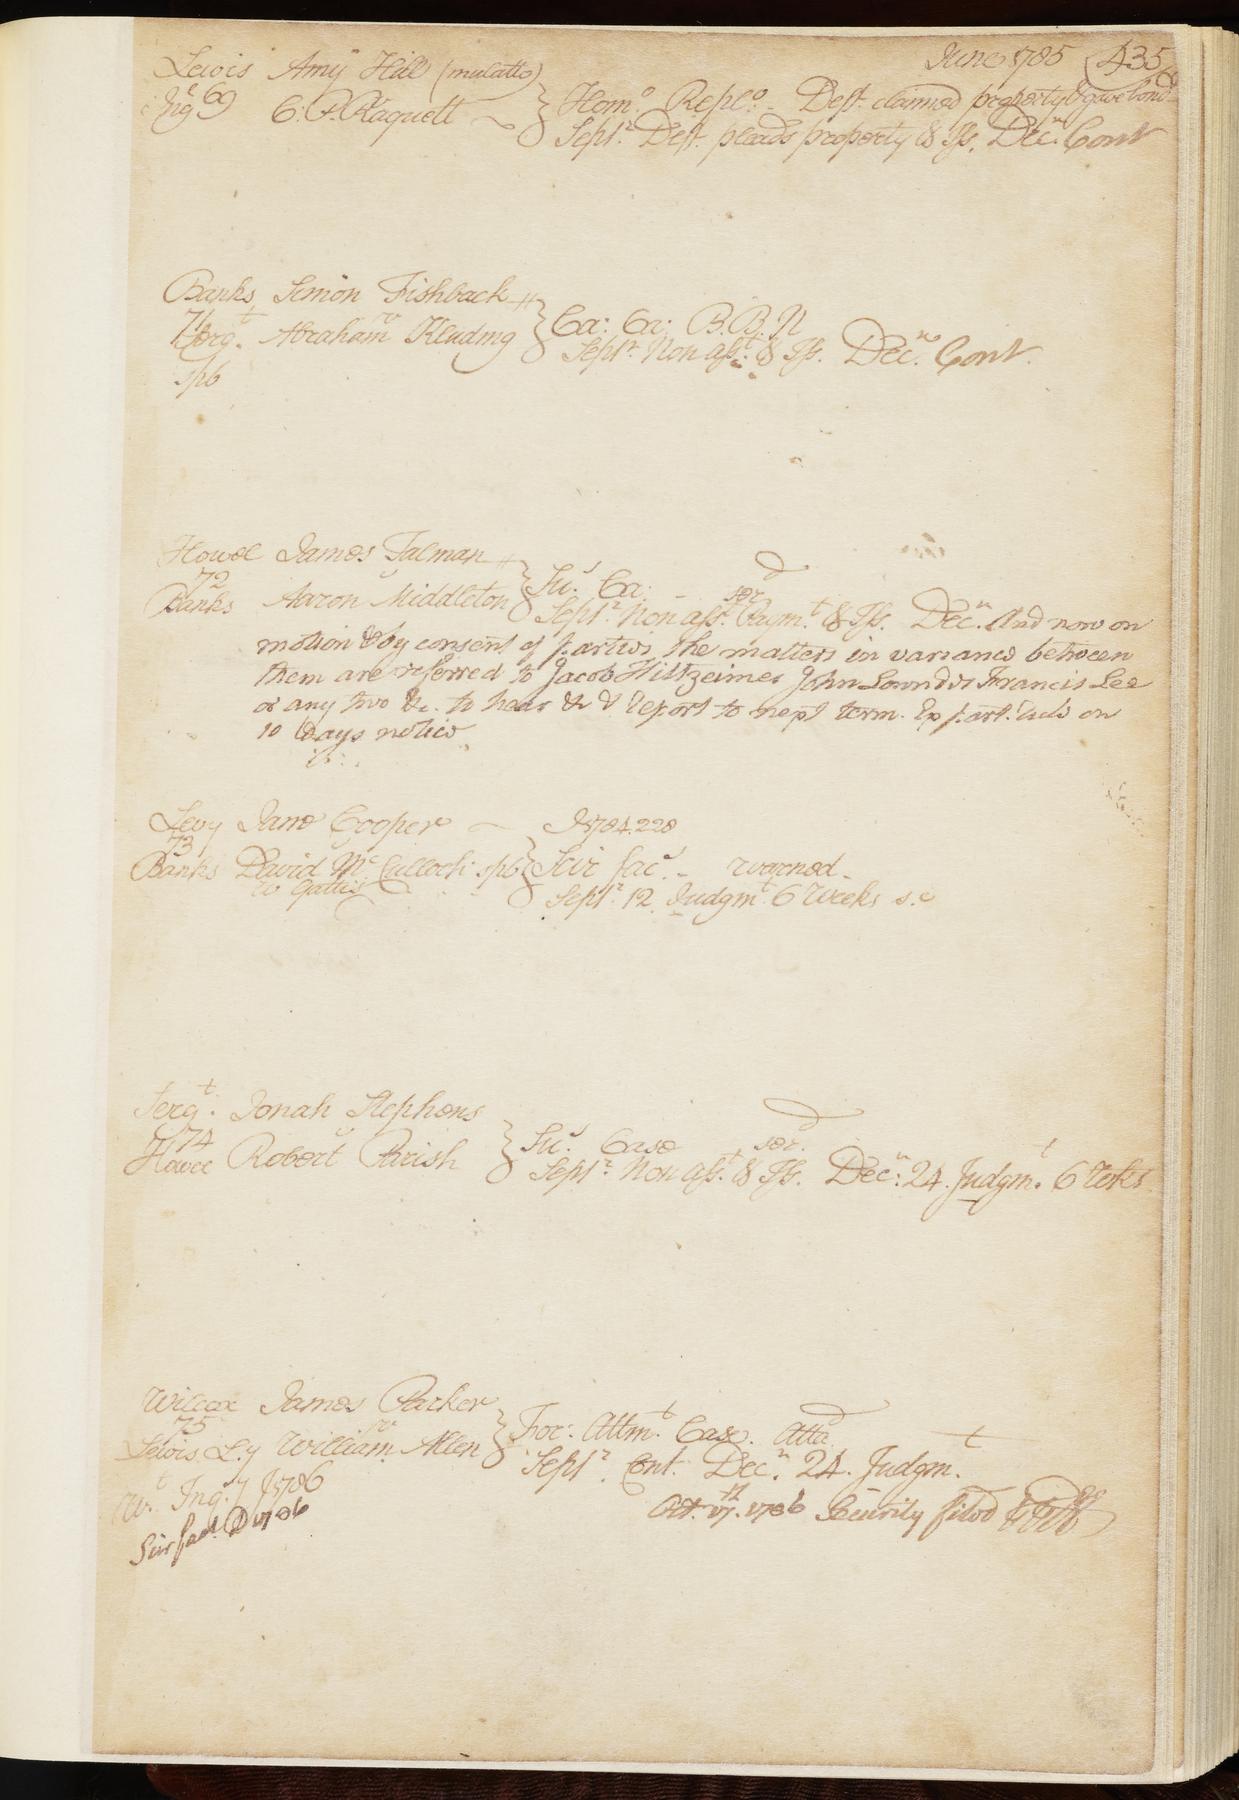 June 1785 (435
Lewis Amy Hill (mulatto)
Ing.l 69 C. F. Raguett } Hom.o Repl.o - Deft. claimed property & gave bond
Sept.r Deft. pleads property & Iss. Dec.r Cont
Banks Simon Fishback
71
Serg.t Abraham Kludmg } Ca: Ca: B.B. N
Sept.r Non ass.t & Iss. Dec.r Cont.
spb
Howel James Talman
72
Banks Aaron Middleton } Su.s Ca. - ser.d
Sept.r Non ass.t Paym.t & Iss. Dec.r And now on
motion & by consent of parties the matters in variance between
them are referred to Jacob Hiltzeimer John Lownds & Francis Lee
or any two &c. to hear & & report to next term. Ex part. Rule on
10 Days notice
Levy Jane Cooper - J 1784. 228
73
Banks David Mc. Culloch spb } Scir fac.s - warned -
w Gattis
Sept.r 12. Judgm.t 6 Weeks s. e
Serg.t Jonah Stephens
74
Howel Robert Parish } Su.s Case ser.d
Sept.r Non ass.t & Iss. Dec.r 24. Judgm.t 6 Weks
Wilcox James Parker
75
Lewis L.y William Allen } For: Attm.t Case. Atta.d
Sept.r Cont. Dec.r 24. Judgm.t
W.t Inq.y J 1786
Oct. 17.th 1786 Security filed
Scir fac.s D 1786